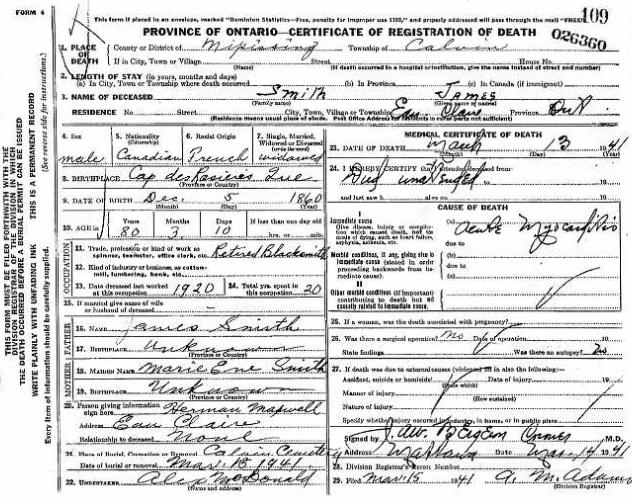 FORM 4
This form if placed in an envelope, marked "Dominion Statistics—Free, penalty for improper use $300," and properly addressed will pass through the mail "FREE"
109
PROVINCE OF ONTARIO—CERTIFICATE OF REGISTRATION OF DEATH
026360
1. PLACE OF DEATH
County or District of Nipissing Township of Calvin
If in City, Town or Village Street House No.
(Name) (If death occurred in a hospital or institution, give the name instead of street and number)
2. LENGTH OF STAY (in years, months and days)
(a) In City, Town or Township where death occurred (b) In Province (c) In Canada (if immigrant)
3. NAME OF DECEASED Smith James
(Family name) (Given name or names)
RESIDENCE No. Street City, Town, Village or Township Eau Claire Province Ont.
(Residence means usual place of abode. Post Office Address for residents in rural parts not sufficient)
4. Sex
male
5. Nationality (Citizenship)
Canadian
6. Racial Origin
French
7. Single, Married, Widowed or Divorced (write the word)
widowed
8. BIRTHPLACE Cap des Rosiers Que
(Province or Country)
9. DATE OF BIRTH Dec. 5 1860
(Month) (Day) (Year)
10. AGE in
Years Months Days If less than one day old
80 3 10 hrs. or min.
OCCUPATION
11. Trade, profession or kind of work as spinner, teamster, office clerk, etc. Retired Blacksmith
12. Kind of industry or business, as cotton-mill, lumbering, bank, etc.
13. Date deceased last worked at this occupation 1920
14. Total yrs. spent in this occupation 20
15. If married give name of wife or husband of deceased
FATHER
16. NAME James Smith
17. BIRTHPLACE Unknown
(Province or Country)
MOTHER
18. MAIDEN NAME Marie Eve Smith
19. BIRTHPLACE Unknown
(Province or Country)
20. Person giving information sign here Herman Maxwell
Address Eau Claire
Relationship to deceased None
21. Place of Burial, Cremation or Removal Calvin Cemetery
Date of burial or removal Mar. 1941
22. UNDERTAKER Alex McDonald
(Name and address)
MEDICAL CERTIFICATE OF DEATH
23. DATE OF DEATH March 13 1941
(Month) (Day) (Year)
24. I HEREBY CERTIFY that I attended deceased from
Died
and last saw h alive on
CAUSE OF DEATH
I
Immediate cause
Give disease, injury or complication which caused death, not the mode of dying, such as heart failure, asphyxia, asthenia, etc.
(a) acute Myocarditis
due to
Morbid conditions, if any, giving rise to immediate cause (stated in order proceeding backwards from immediate cause)
(b)
due to
(c)
II
Other morbid conditions (if important) contributing to death but not causally related to immediate cause
25. If a woman, was the death associated with pregnancy?
26. Was there a surgical operation? No Date of operation
State findings Was there an autopsy? No
27. If death was due to external causes (violence) fill in also the following:—
Accident, suicide or homicide? Date of injury 19
(State which)
Manner of injury
(How sustained)
Nature of injury
Specify whether injury occurred in industry, in home, or in public place
Signed by Coroner M.D.
Address Mattawa Date Mar. 14 1941
28. Division Registrar's Record Number
29. Filed Mar. 15 1941 A. M. Adams
(Division Registrar)
THIS FORM MUST BE DEPOSITED WITH THE DIVISION REGISTRAR OF THE DIVISION IN WHICH THE DEATH OCCURRED BEFORE A BURIAL PERMIT CAN BE ISSUED
WRITE PLAINLY WITH UNFADING INK THIS IS A PERMANENT RECORD
Every item of information should be carefully supplied. (See reverse side for instructions.)